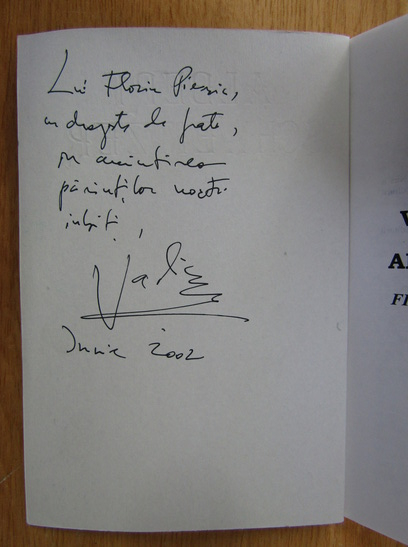 Lui Florin Piersic,
cu dragoste de frate,
în amintirea
părinților noștri
iubiți,
Iunie 2002
V
A
FI